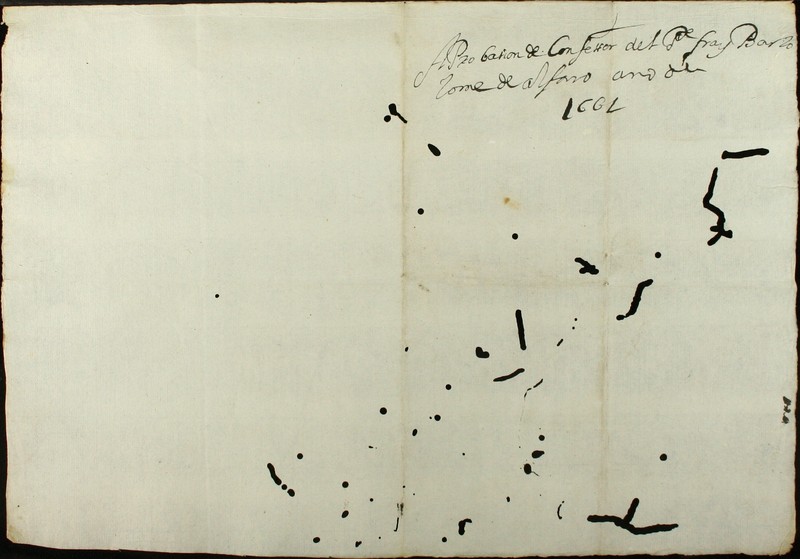 AProbasion de Confessor del Pe fray Barto
lome de alfaro ano de
1661